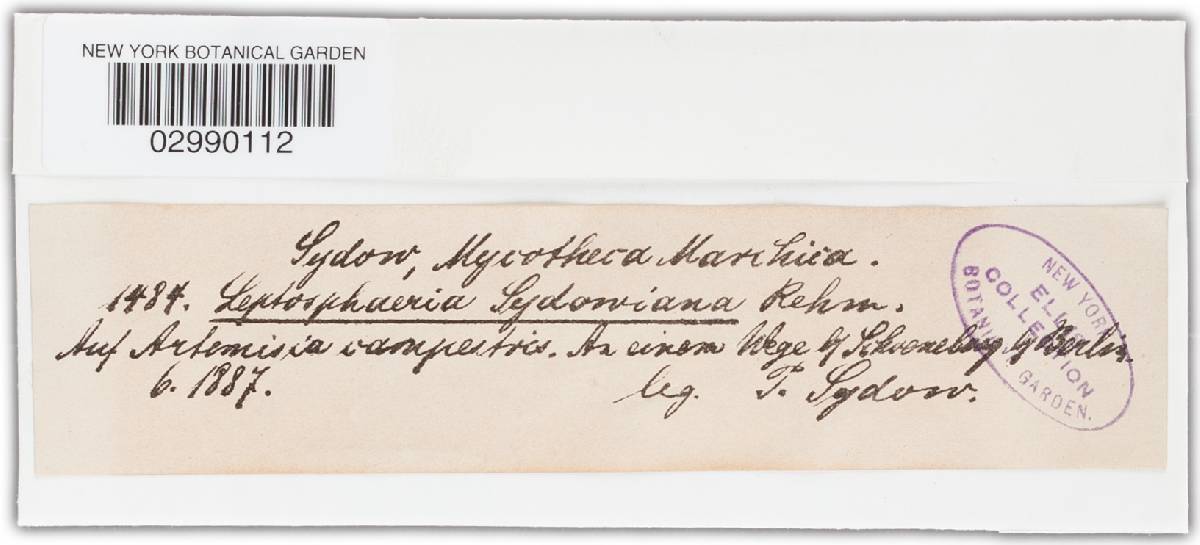 NEW YORK BOTANICAL GARDEN
02990112
Sydow, Mycotheca Marchica.
1484. Leptosphaeria Sydowiana Rehm.
Auf Artemisia campestris. An einem Wege b/ Schoeneberg b/ Berlin.
6. 1887. leg. P. Sydow.
NEW YORK
COLLECTION
BOTANICAL GARDEN.